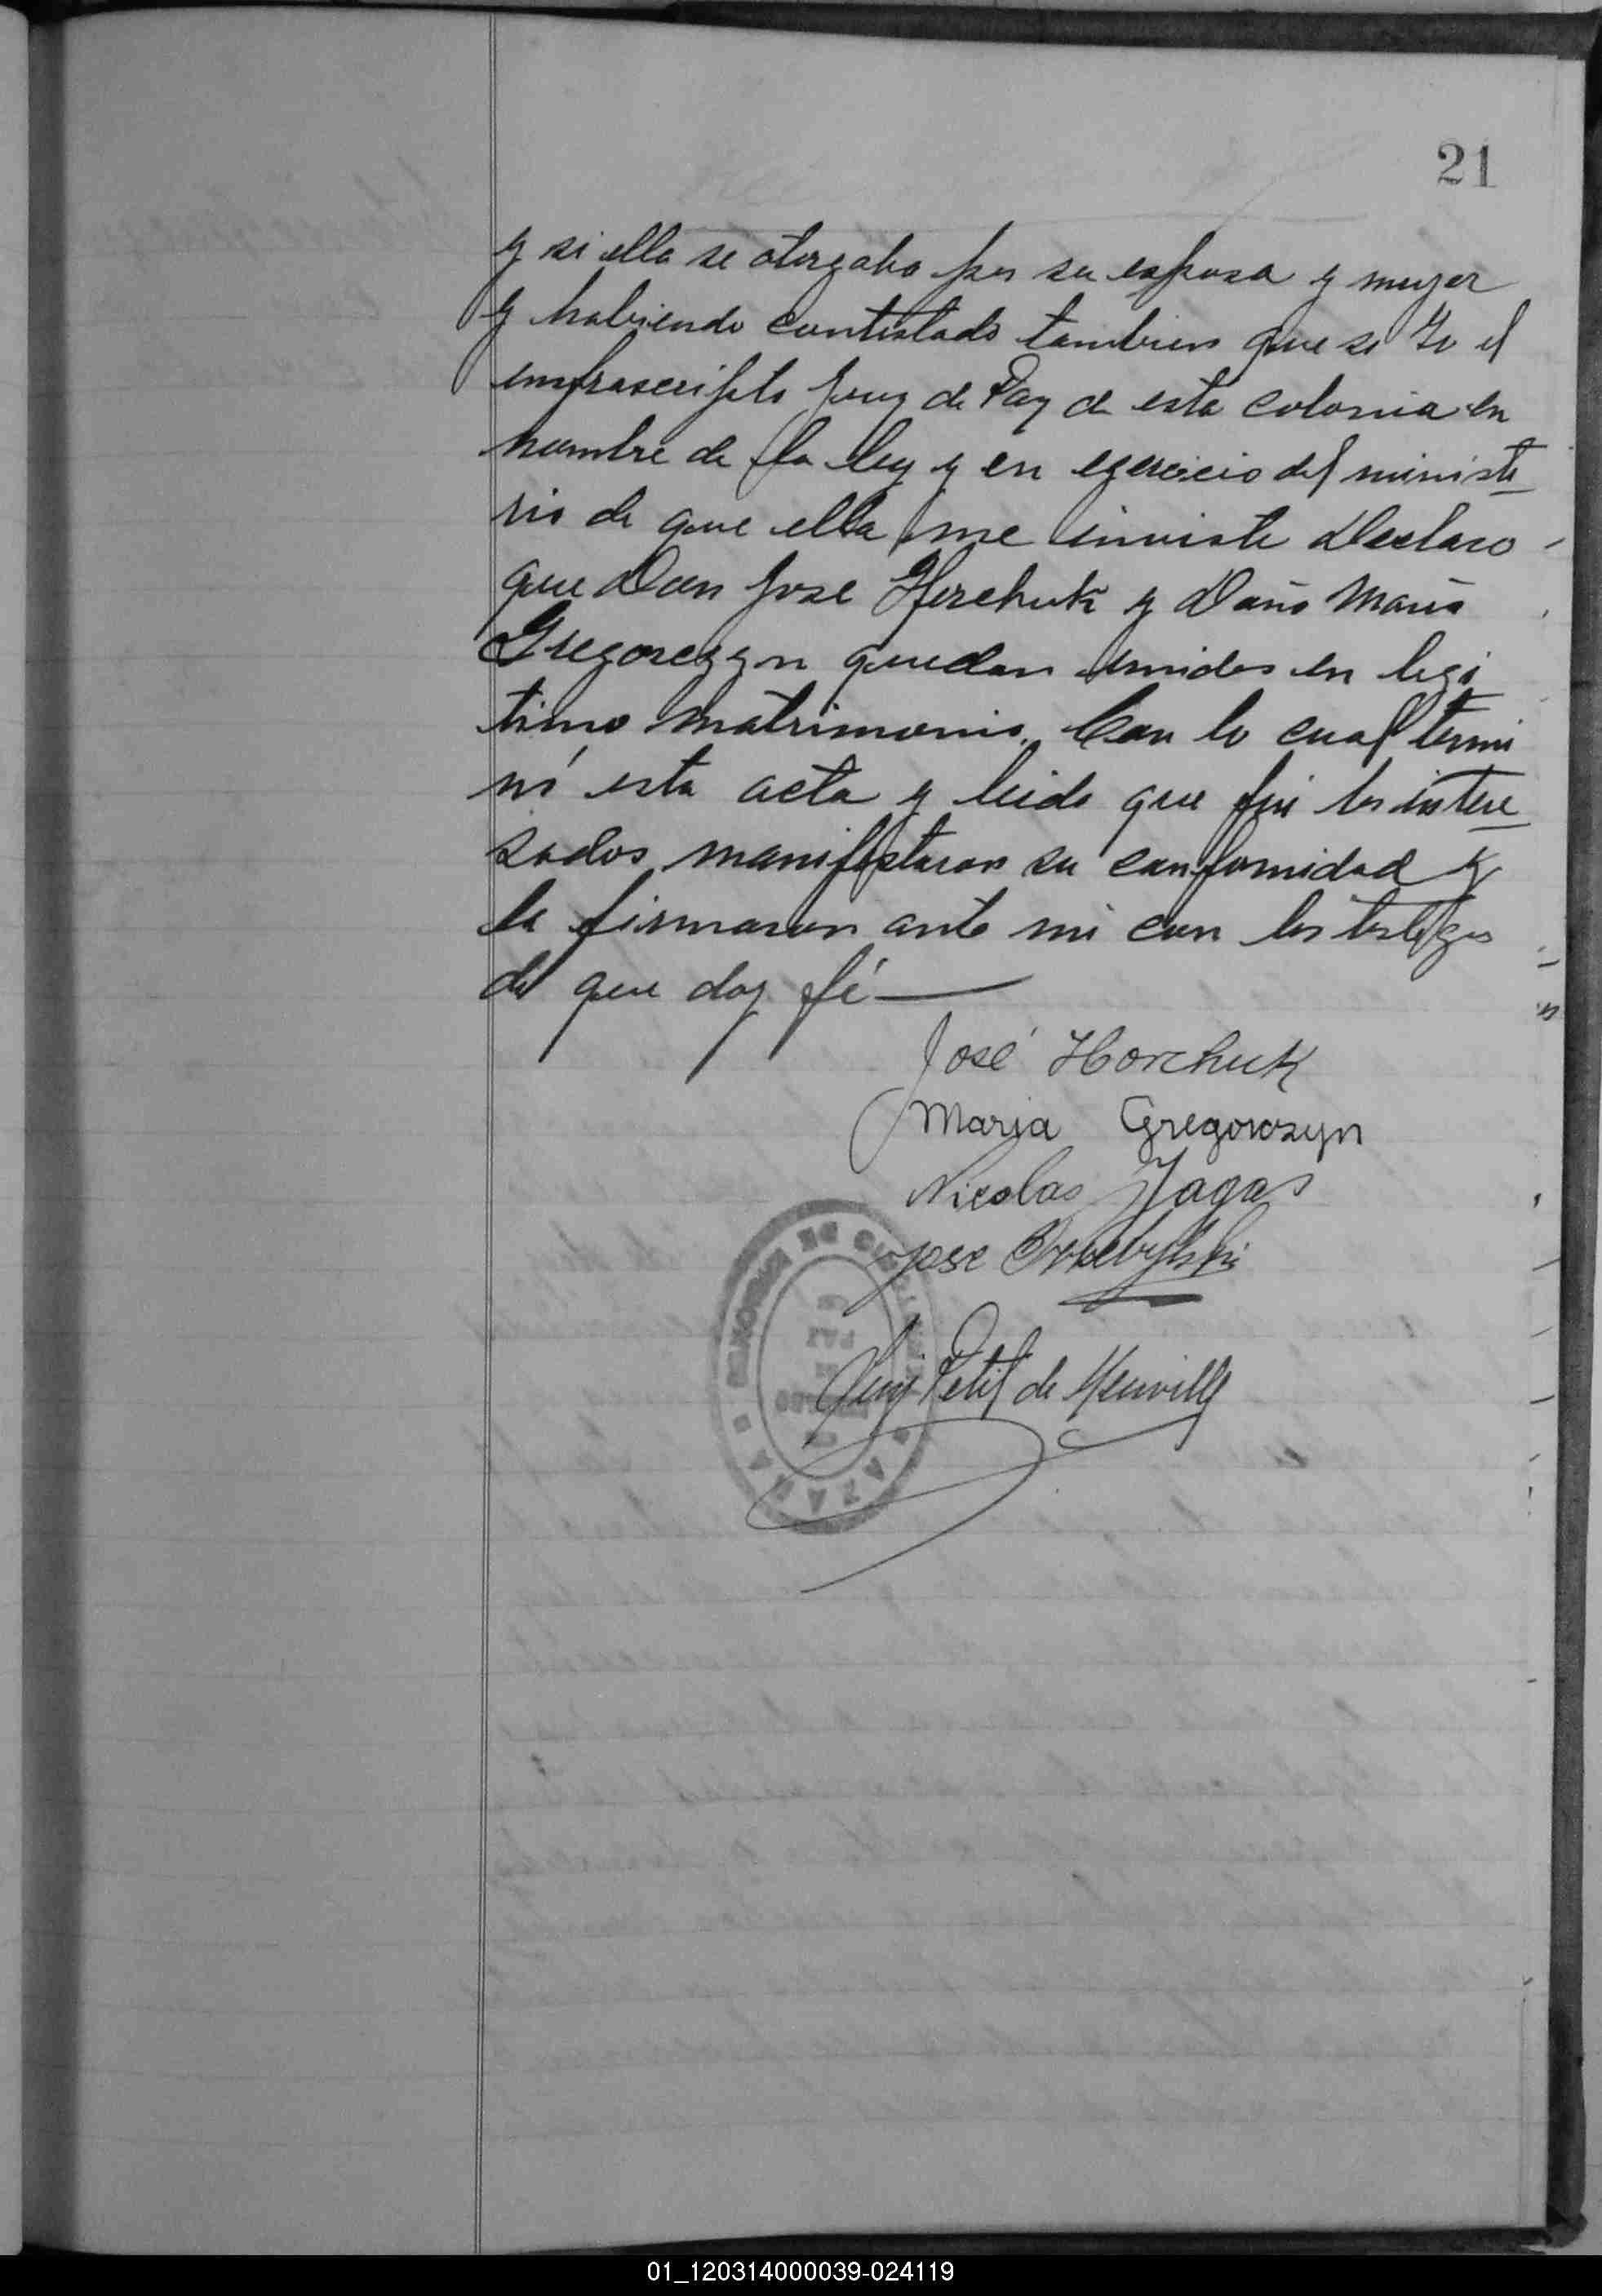 21
y si ella se otorgaba por su esposa y muger
y habiendo contestado tambien que si Yo el
infrascripto Juez de Paz de esta colonia en
nombre de la ley y en egercicio del ministe
rio de que ella me inviste Declaro
que Don Jose Horchuk y Doña Maria
Gregorczyn quedan unidos en legi
timo matrimonio. Con lo cual termi
nó esta acta y leida que fué los intere
sados manifestaron su conformidad y
la firmaron ante mi con los testigos
de que doy fé
José Horchuk
Maria Gregorczyn
Nicolas Jagas
Jose
Luis Petit de Meurville
MISIONES
PAZ
AZARA
01_120314000039-024119